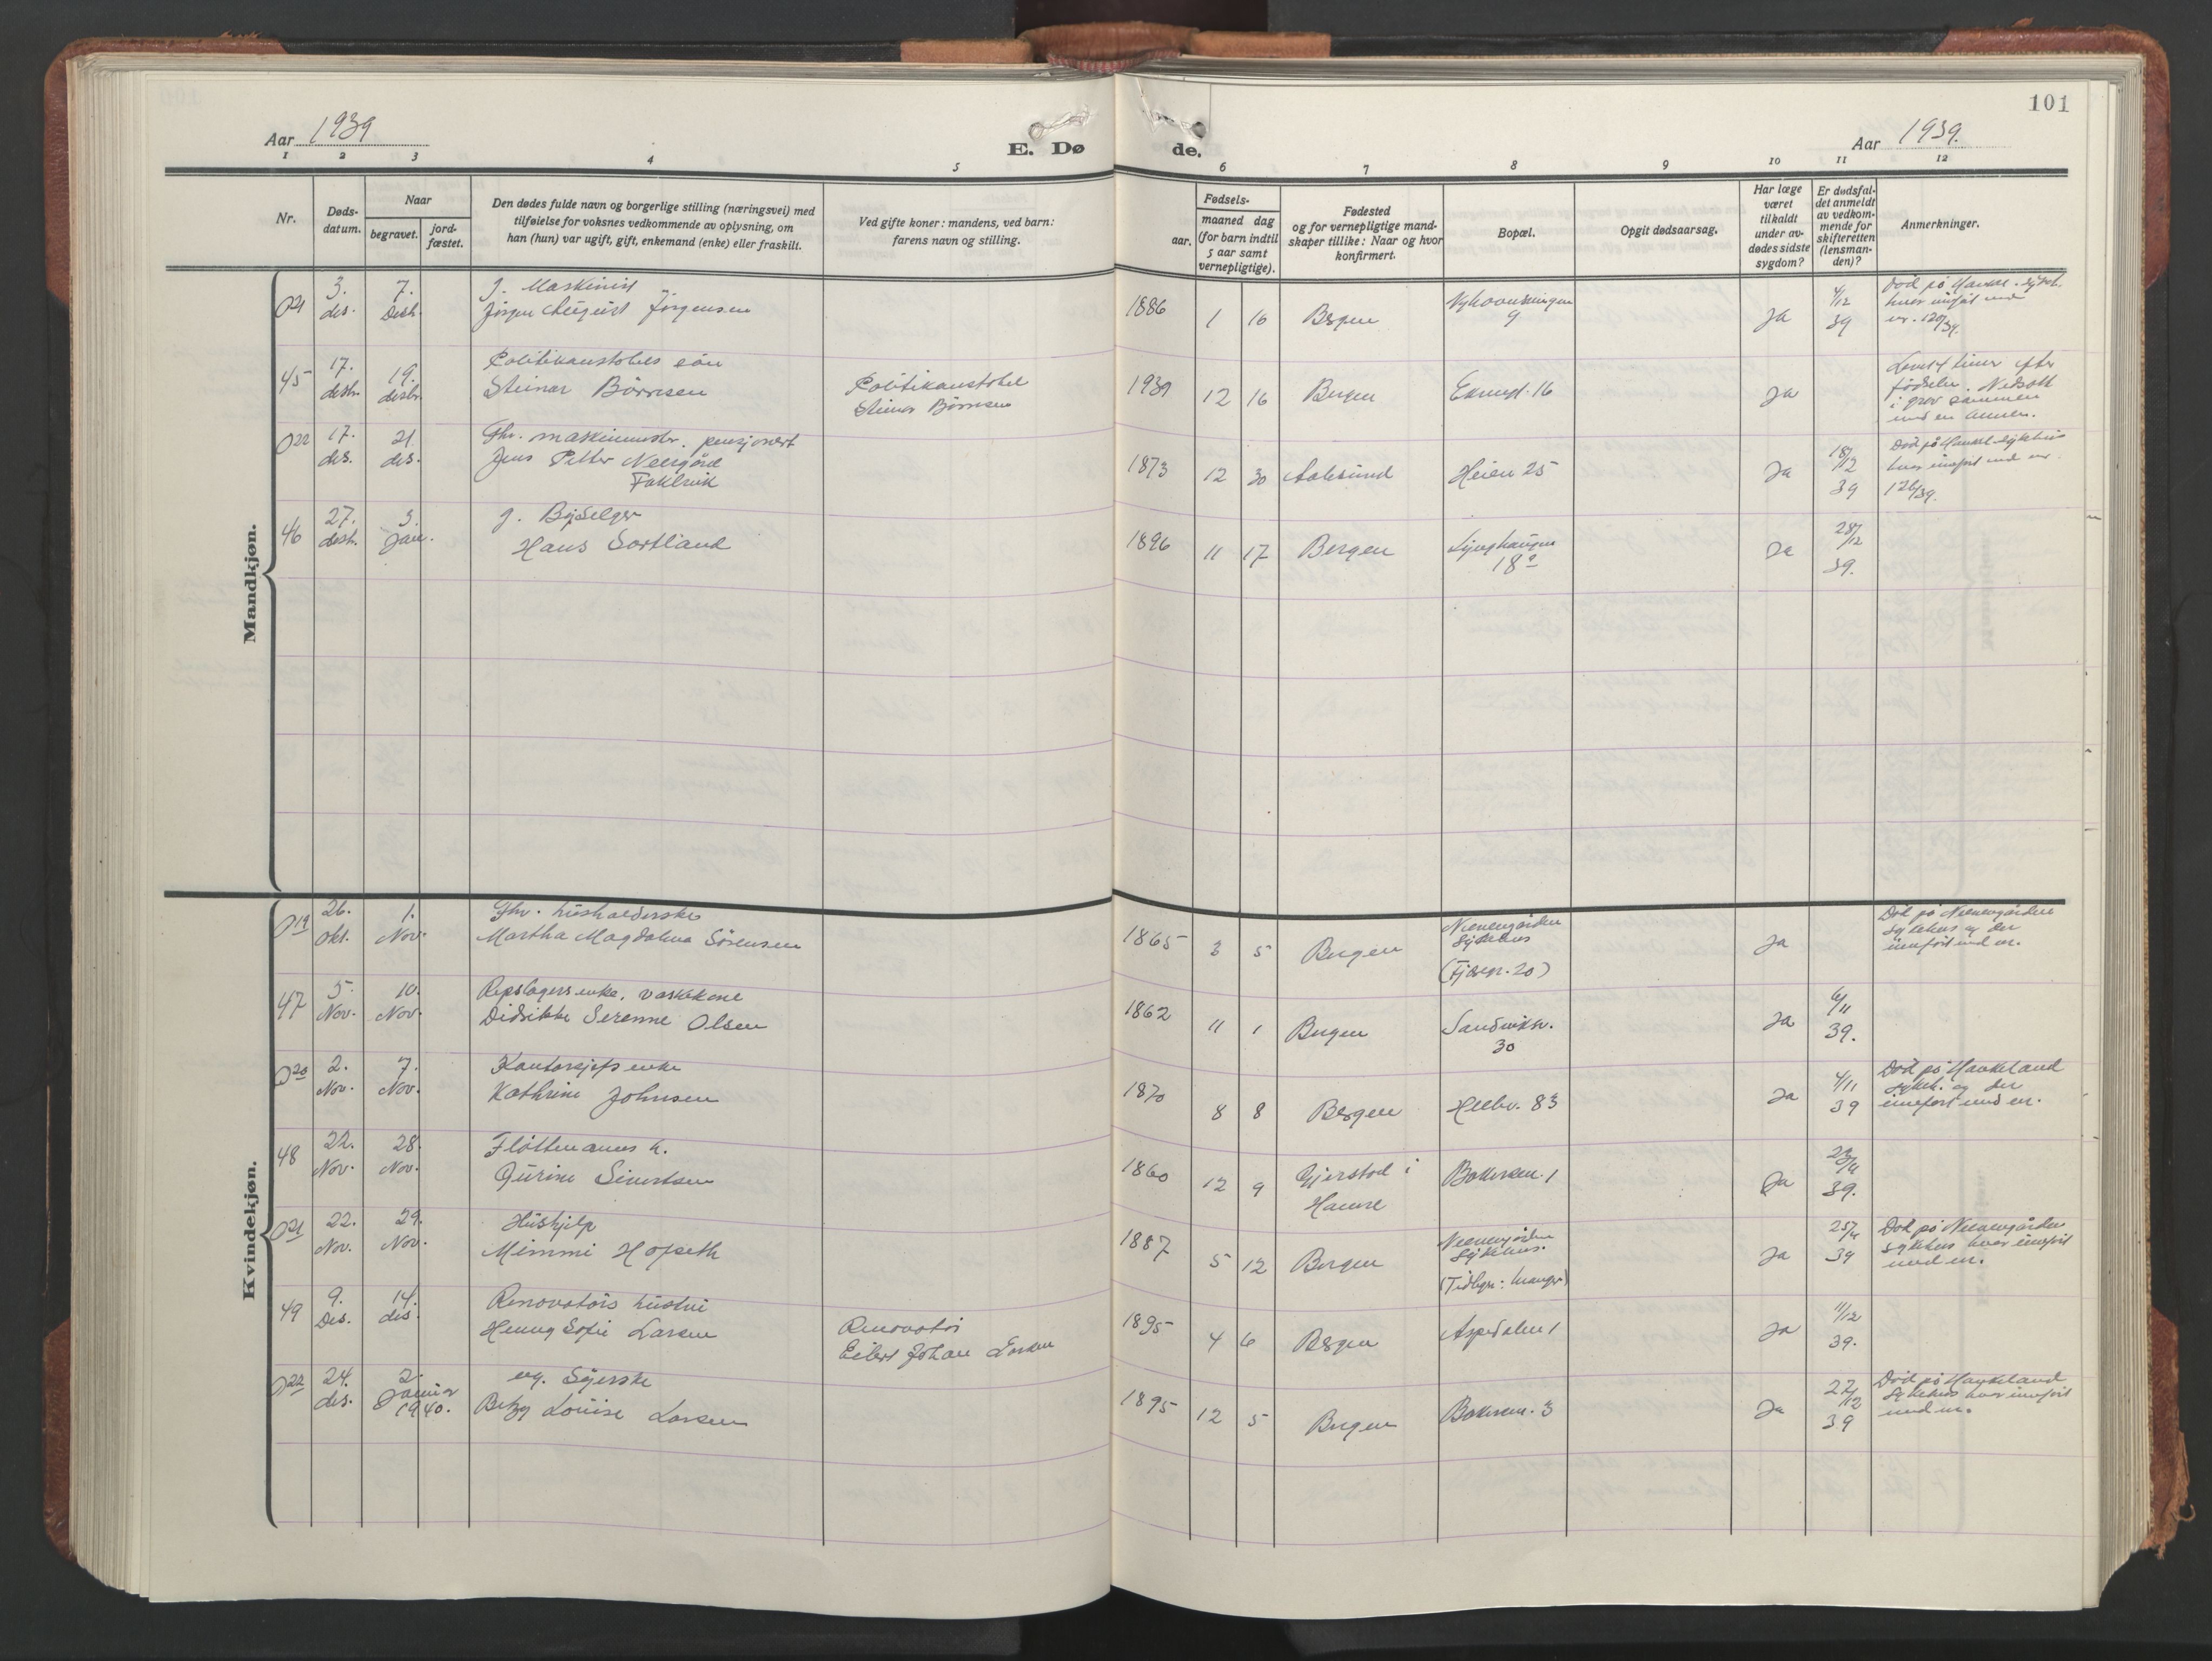 101
Aar 1939
E. Dø
de.
Aar 1939.
1 2 3 4 5 6 7 8 9 10 11 12
Nr.
Døds-
datum.
Naar
begravet.
jord-
fæstet.
Den dødes fulde navn og borgerlige stilling (næringsvei) med
tilføielse for voksnes vedkommende av oplysning, om
han (hun) var ugift, gift, enkemand (enke) eller fraskilt.
Ved gifte koner: mandens, ved barn:
farens navn og stilling.
Fødsels-
aar.
maaned dag
(for barn indtil
5 aar samt
vernepligtige).
Fødested
og for vernepligtige mand-
skaper tillike: Naar og hvor
konfirmert.
Bopæl.
Opgit dødsaarsag.
Har læge
været
tilkaldt
under av-
dødes sidste
sygdom?
Er dødsfal-
det anmeldt
av vedkom-
mende for
skifteretten
(lensman-
den)?
Anmerkninger.
Mandkjøn.
O21
3.
des.
7.
Desb.
g. Maskinist
Jørgen August Jørgensen
1886
1 16
Bergen
9
Ja
4/12
39
Død på Haukel. sykeh.
hvor innført med
nr. 120/39.
45
17.
desbr.
19.
desbr.
Politikonstabels sön
Steinar Børresen
Politikonstabel
Steinar Børresen
1939
12 16
Bergen
16
Ja
Levet timer efter
fødselen. Nedsatt
i grav sammen
med en annen.
O22
17.
des.
21.
des.
Fhv. maskinmstr. pensjonert
Jens Petter Neergård
1873
12 30
Aalesund
Heien 25
Ja
18/12
39
Død på Haukel. sykehus
hvor innført med nr.
126/39.
46
27.
desb.
3.
Jan.
g. Bysselger
Hans Sortland
1896
11 17
Bergen
Lynghaugen
18a
Ja
28/12
39.
Kvindekjøn.
O19
26.
Okt.
1.
Nov.
Fhv. husholderske
Martha Magdalena Sørensen
1865
3 5
Bergen
Neevengården
Sykehus
(Fjøsgr. 20)
Ja
Død på Neevengården
Sykehus og der
innført med nr.
47
5.
Nov.
10.
Nov.
Repslagers enke, vaskekone
Didrikke Serenne Olsen
1862
11 1
Bergen
Sandviksv.
30
Ja
6/11
39.
O20
2.
Nov.
7.
Nov.
Kontorsjefs enke
Kathrine Johnsen
1870
8 8
Bergen
Hellev. 83
Ja
4/11
39
Død på Haukeland
sykeh. og der
innført med nr.
48
22.
Nov.
28.
Nov.
Fløttmanns h.
Gurine Sivertsen
1860
12 9
Gjerstad i
Hamre
Bakersm. 1
Ja
23/11
39.
O21
22.
Nov.
29.
Nov.
Hushjelp
Mimmi Hofseth
1887
5 12
Bergen
Neevengården
Sykehus.
Ja
25/11
39
Død på Neevengården
sykehus hvor innført
med nr.
49
9.
Des.
14.
des.
Renovatørs hustru
Henny Sofie Larsen
Renovatør
Eilert Johan Larsen
1895
4 6
Bergen
Aspedalen 1
Ja
11/12
39.
O22
24.
des.
2.
Januar
1940.
ug. Syerske
Betzy Louise Larsen
1895
12 5
Bergen
Bakersm. 3
Ja
27/12
39
Død på Haukeland
Sykehus hvor innført
med nr.